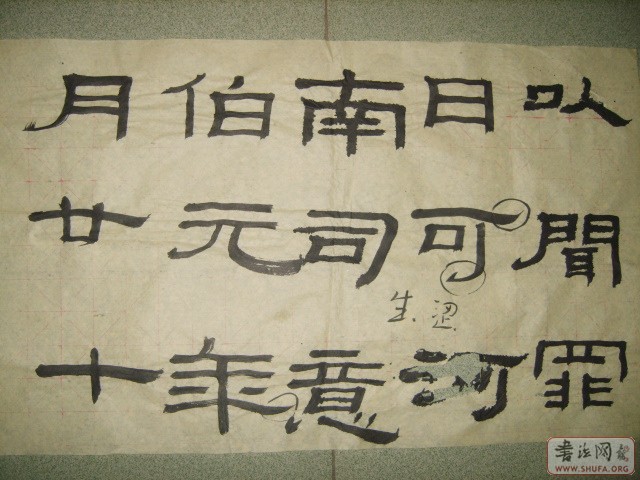 以聞罪
日可河
南司意
伯元年
月廿十
生
書法网
WWW.SHUFA.ORG